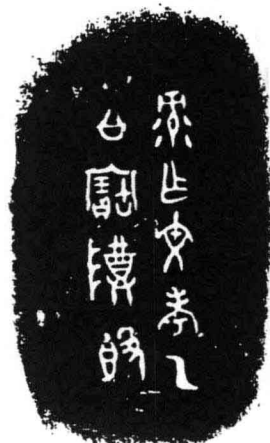 乍文考乙
公寶尊𣪘